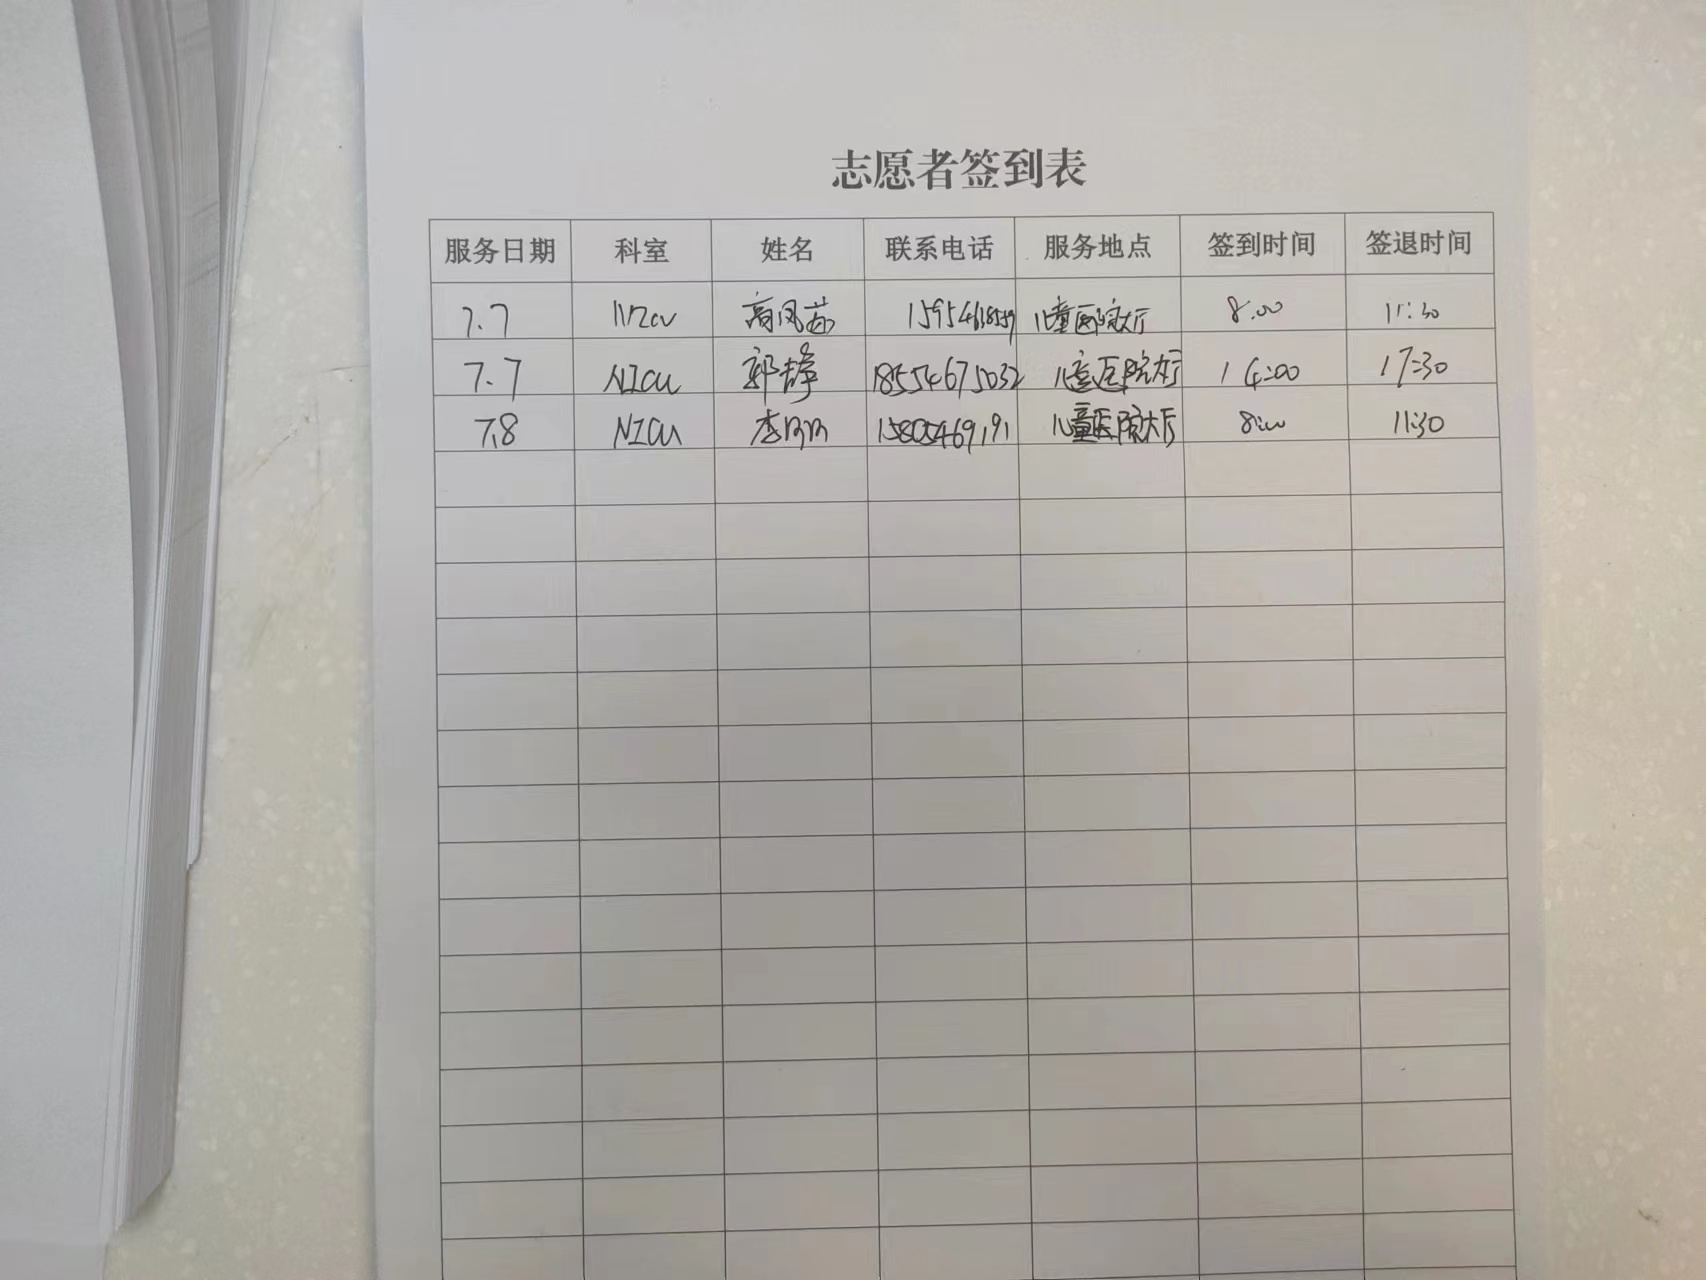 志愿者签到表
服务日期 科室 姓名 联系电话 服务地点 签到时间 签退时间
7.7 NICU 高凤茹 儿童医院大厅 8:00 11:30
7.7 NICU 郭婷 18554675032 儿童医院大厅 14:00 17:30
7.8 NICU 李 15805469191 儿童医院大厅 8:00 11:30